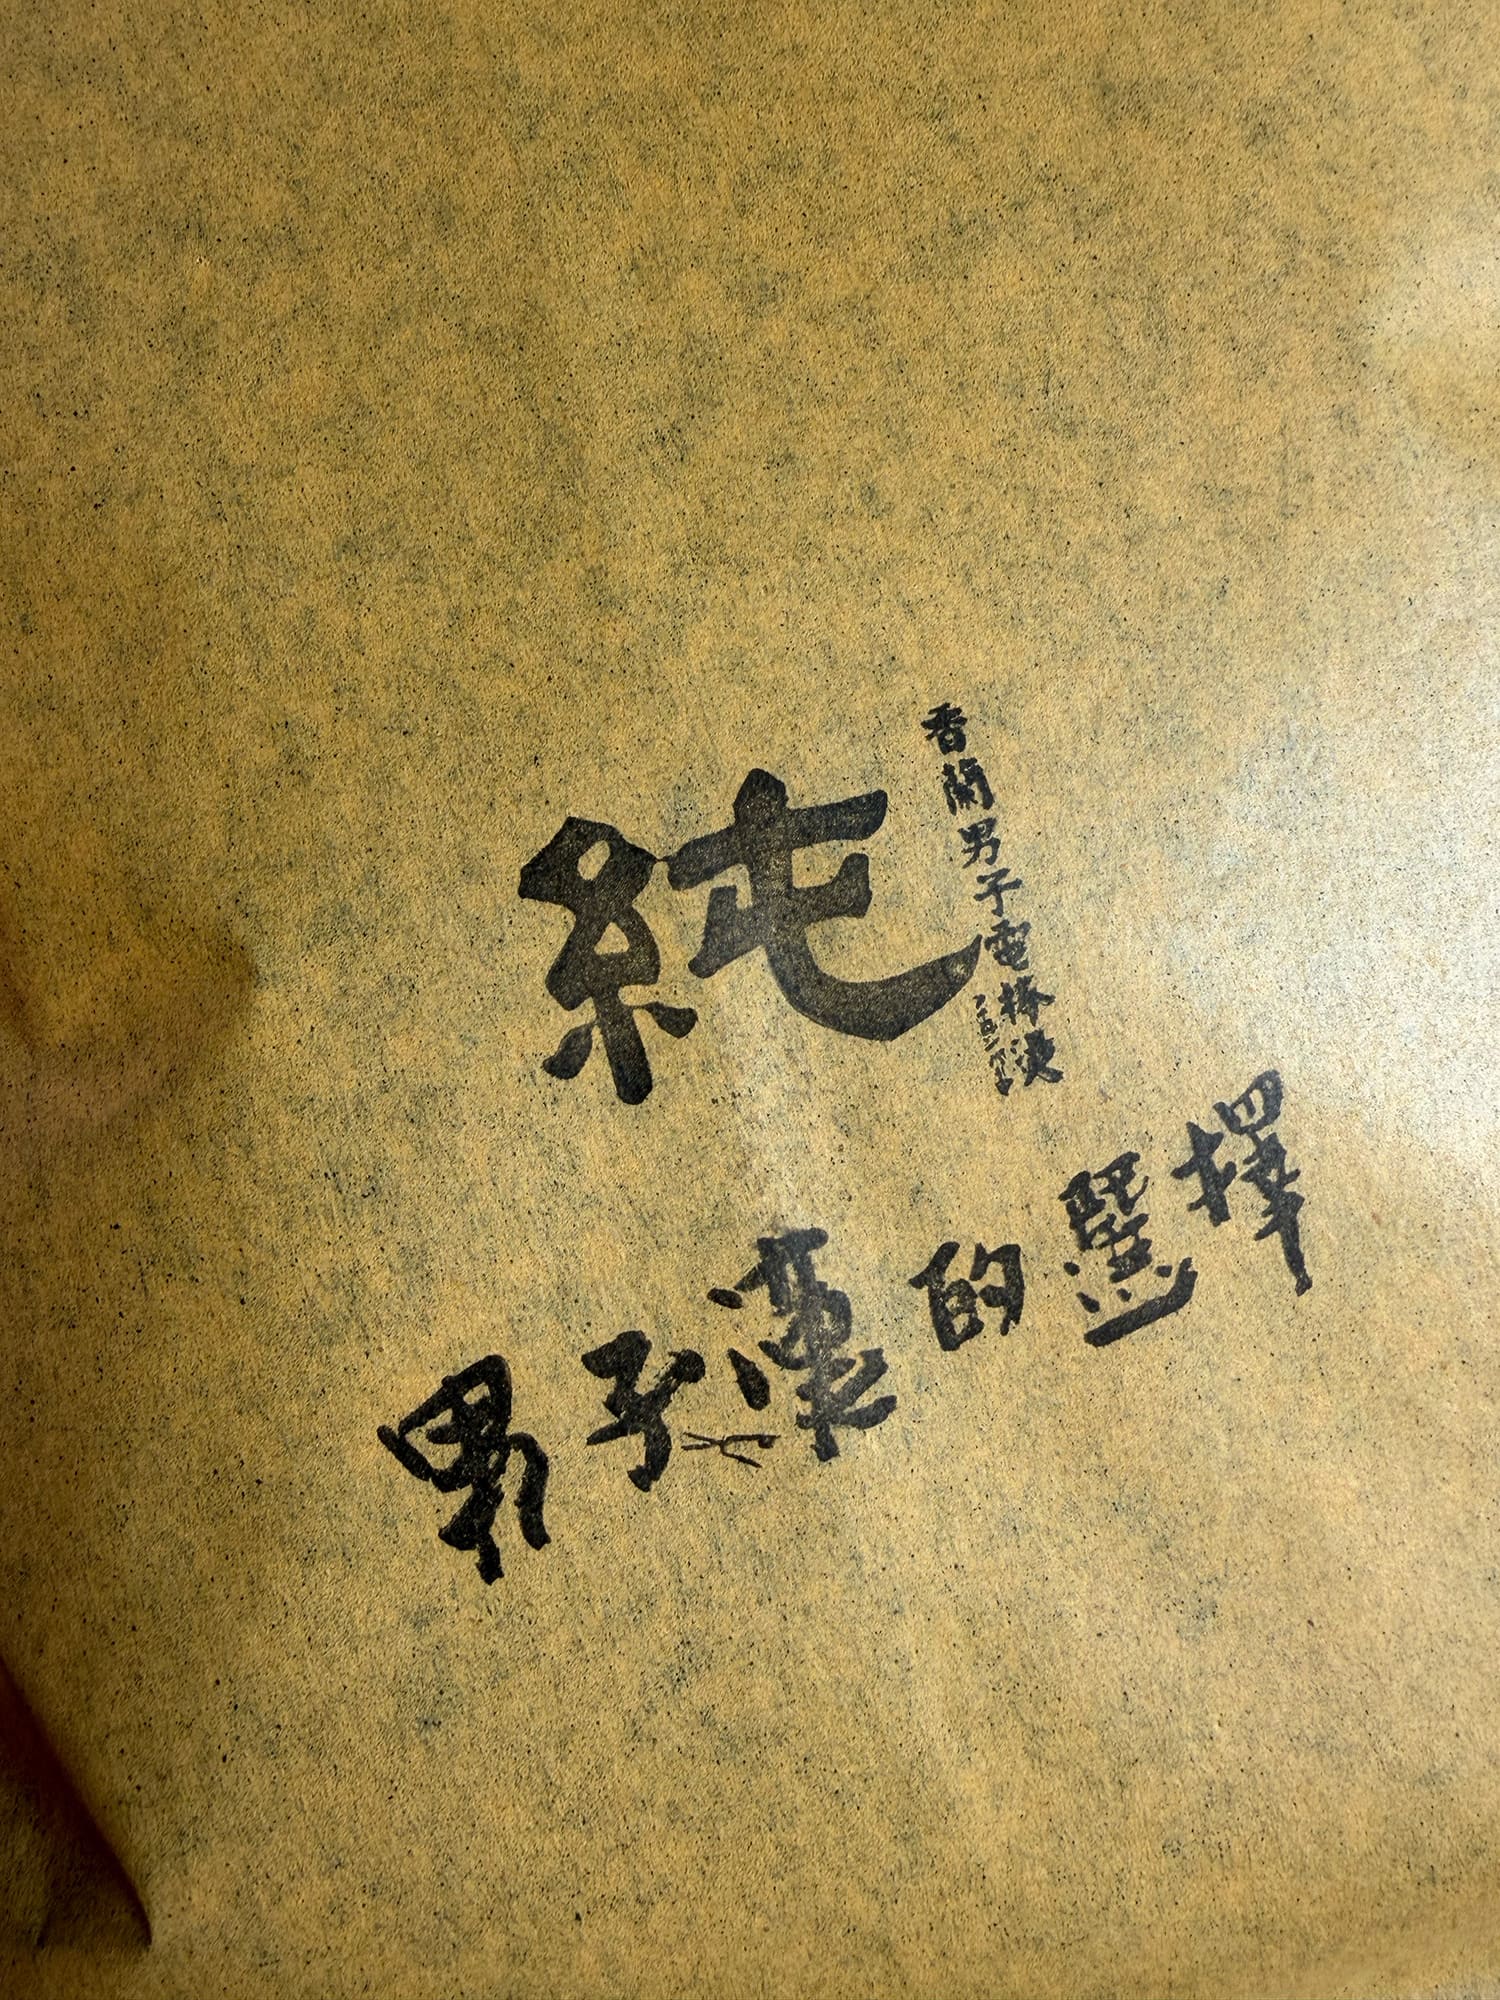 純
香蘭男子電棒燙
男子漢的選擇